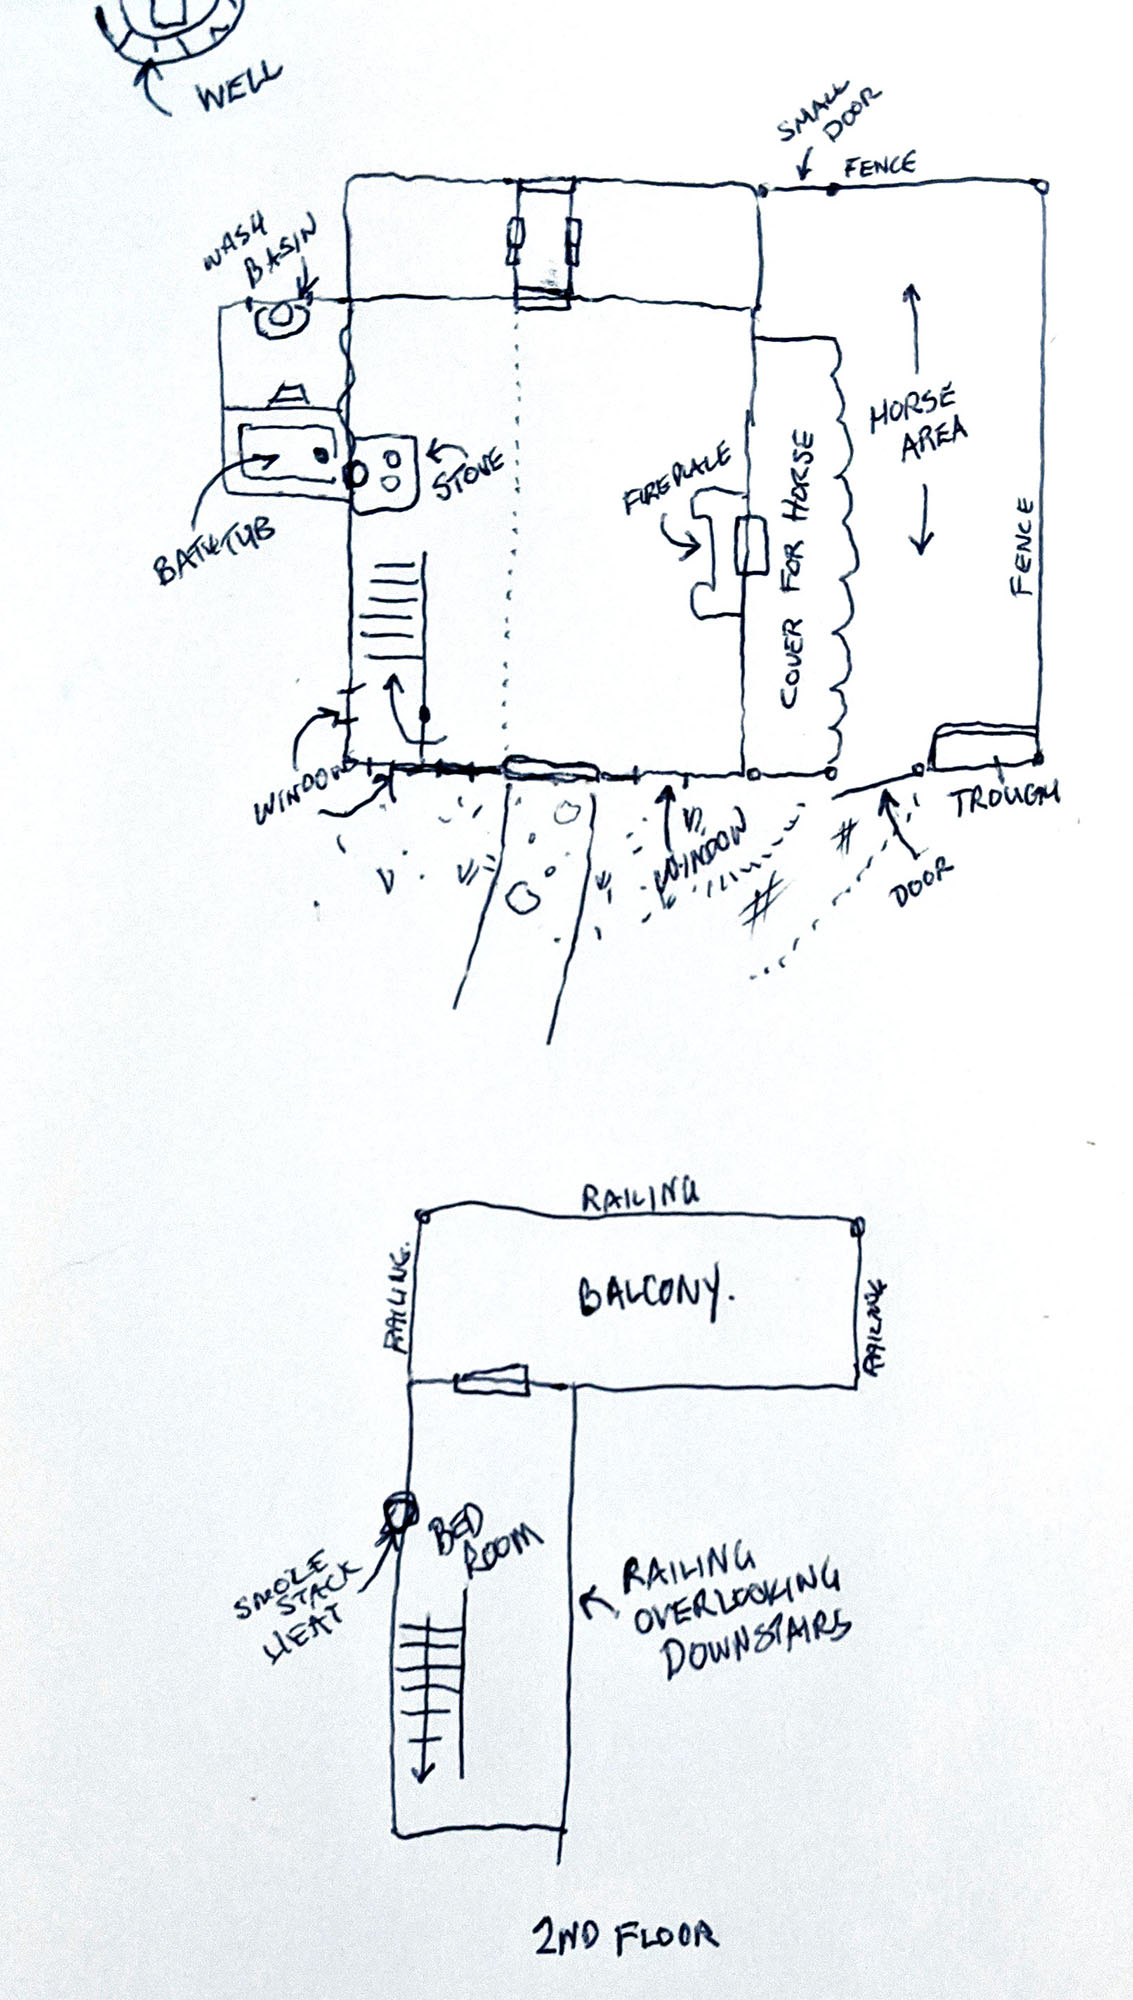 WELL
SMALL
DOOR
FENCE
WASH
BASIN
HORSE
AREA
STOVE
FIREPLALE
COVER FOR HORSE
FENCE
BATHTUB
WINDOW
WINDOW
TROUGH
DOOR
RAILING
RAILING.
BALCONY.
RAILING
BED
ROOM
SMOKE
STACK
HEAT
RAILING
OVERLOOKING
DOWNSTAIRS
2ND FLOOR